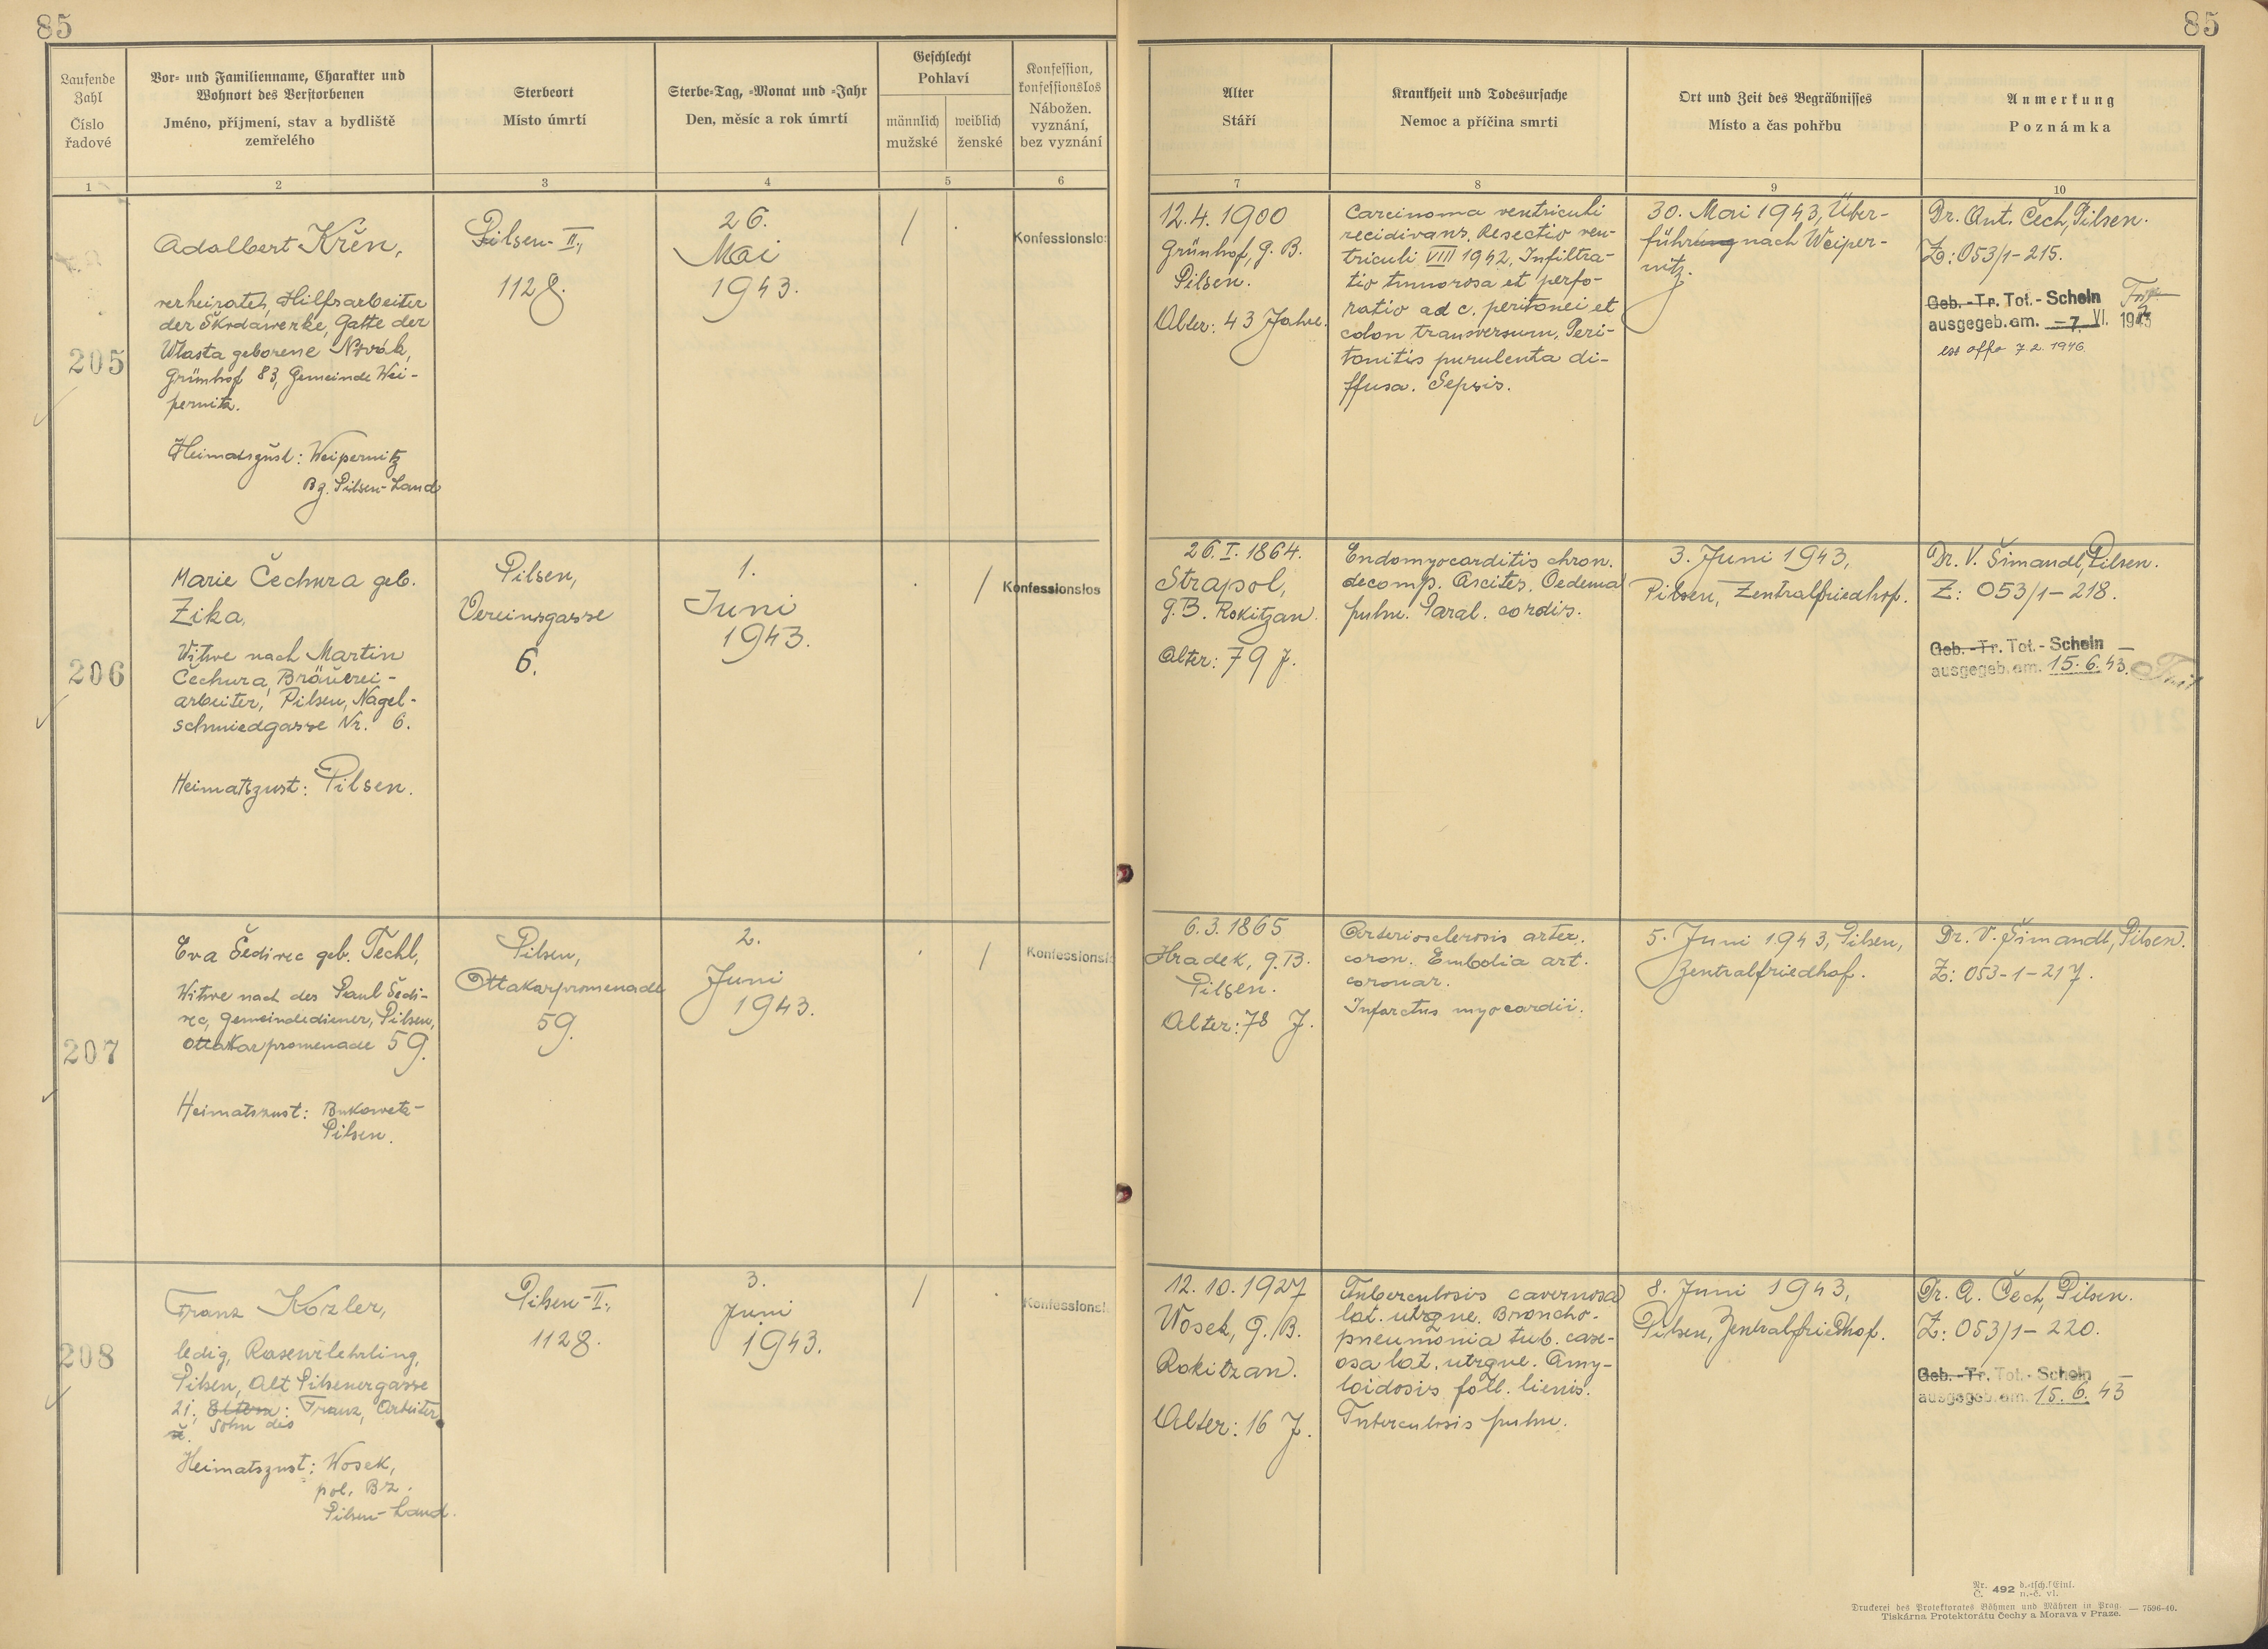 85
85
Laufende Zahl
Číslo řadové
Vor- und Familienname, Charakter und
Wohnort des Verstorbenen
Jméno, příjmení, stav a bydliště
zemřelého
Sterbeort
Místo úmrtí
Sterbe-Tag, -Monat und -Jahr
Den, měsíc a rok úmrtí
Geschlecht
Pohlaví
männlich
mužské
weiblich
ženské
Konfession,
konfessionslos
Nábožen.
vyznání,
bez vyznání
Alter
Stáří
Krankheit und Todesursache
Nemoc a příčina smrti
Ort und Zeit des Begräbnisses
Místo a čas pohřbu
Anmerkung
Poznámka
1 2 3 4 5 6 7 8 9 10
205
Adalbert Křen,
verheiratet, Hilfsarbeiter
der Škodawerke, Gatte der
Wlasta geborene Novák,
Grünhof 83, Gemeinde Wei-
pernitz.
Heimatszust: Weipernitz
Bz. Pilsen-Land
Pilsen-II.,
1128.
26.
Mai
1943.
/
Konfessionslos
12.4.1900
Grünhof, G.B.
Pilsen.
Alter: 43 Jahre.
Carcinoma ventriculi
recidivans. Resectio ven-
triculi VIII 1942. Infiltra-
tio tumorosa et perfo-
ratio ad c. peritonei et
colon transversum. Peri-
tonitis purulenta di-
ffusa. Sepsis.
30. Mai 1943, Über-
führung nach Weiper-
nitz.
Dr. Ant. Čech, Pilsen.
Z: 053/1-215.
Geb.-Tr. Tot.-Schein
ausgegeb. am. -7. VI. 1943
7.2.1946
206
Marie Čechura geb.
Zika,
Witwe nach Martin
Čechura, Bräuerei-
arbeiter, Pilsen, Nagel-
schmiedgasse Nr. 6.
Heimatszust: Pilsen.
Pilsen,
Vereinsgasse
6.
1.
Juni
1943.
/
Konfessionslos
26.I.1864.
Strapol,
G.B. Rokitzan.
Alter: 79 J.
Endomyocarditis chron.
decomp. Ascites. Oedema
pulm. Paral. cordis.
3. Juni 1943,
Pilsen, Zentralfriedhof.
Dr. V. Šimandl, Pilsen.
Z: 053/1-218.
Geb.-Tr. Tot.-Schein
ausgegeb. am. 15.6.43.
207
Eva Šedivec geb. Techl,
Witwe nach des Paul Šedi-
vec, Gemeindediener, Pilsen,
Ottakarpromenade 59.
Heimatszust: Bukowetz-
Pilsen.
Pilsen,
Ottakarpromenade
59.
2.
Juni
1943.
/
Konfessionslos
6.3.1865
Hradek, G.B.
Pilsen.
Alter: 78 J.
Arteriosclerosis arter.
coron. Embolia art.
coronar.
Infarctus myocardii.
5. Juni 1943, Pilsen,
Zentralfriedhof.
Dr. V. Šimandl, Pilsen.
Z: 053-1-217.
208
Franz Kozler,
ledig, Rasewrlehrling,
Pilsen, Alt Pilsenergasse
21; Eltern: Franz, Arbeiter
Sohn des
Heimatszust: Wosek,
pol. Bz.
Pilsen-Land.
Pilsen-II.,
1128.
3.
Juni
1943.
/
Konfessionslos
12.10.1927
Wosek, G.B.
Rokitzan.
Alter: 16 J.
Tuberculosis cavernosa
lat. utrque. Broncho-
pneumonia tub. case-
osa lat. utrque. Amy-
loidosis foll. lienis.
Tuberculosis pulm.
8. Juni 1943,
Pilsen, Zentralfriedhof.
Dr. A. Čech, Pilsen.
Z: 053/1-220.
Geb.-Tr. Tot.-Schein
ausgegeb. am. 15.6.43
Nr. Č. 492 d.-tsch. Einl. n.-č. vl.
Druckerei des Protektorates Böhmen und Mähren in Prag. — 7596-40.
Tiskárna Protektorátu Čechy a Morava v Praze.